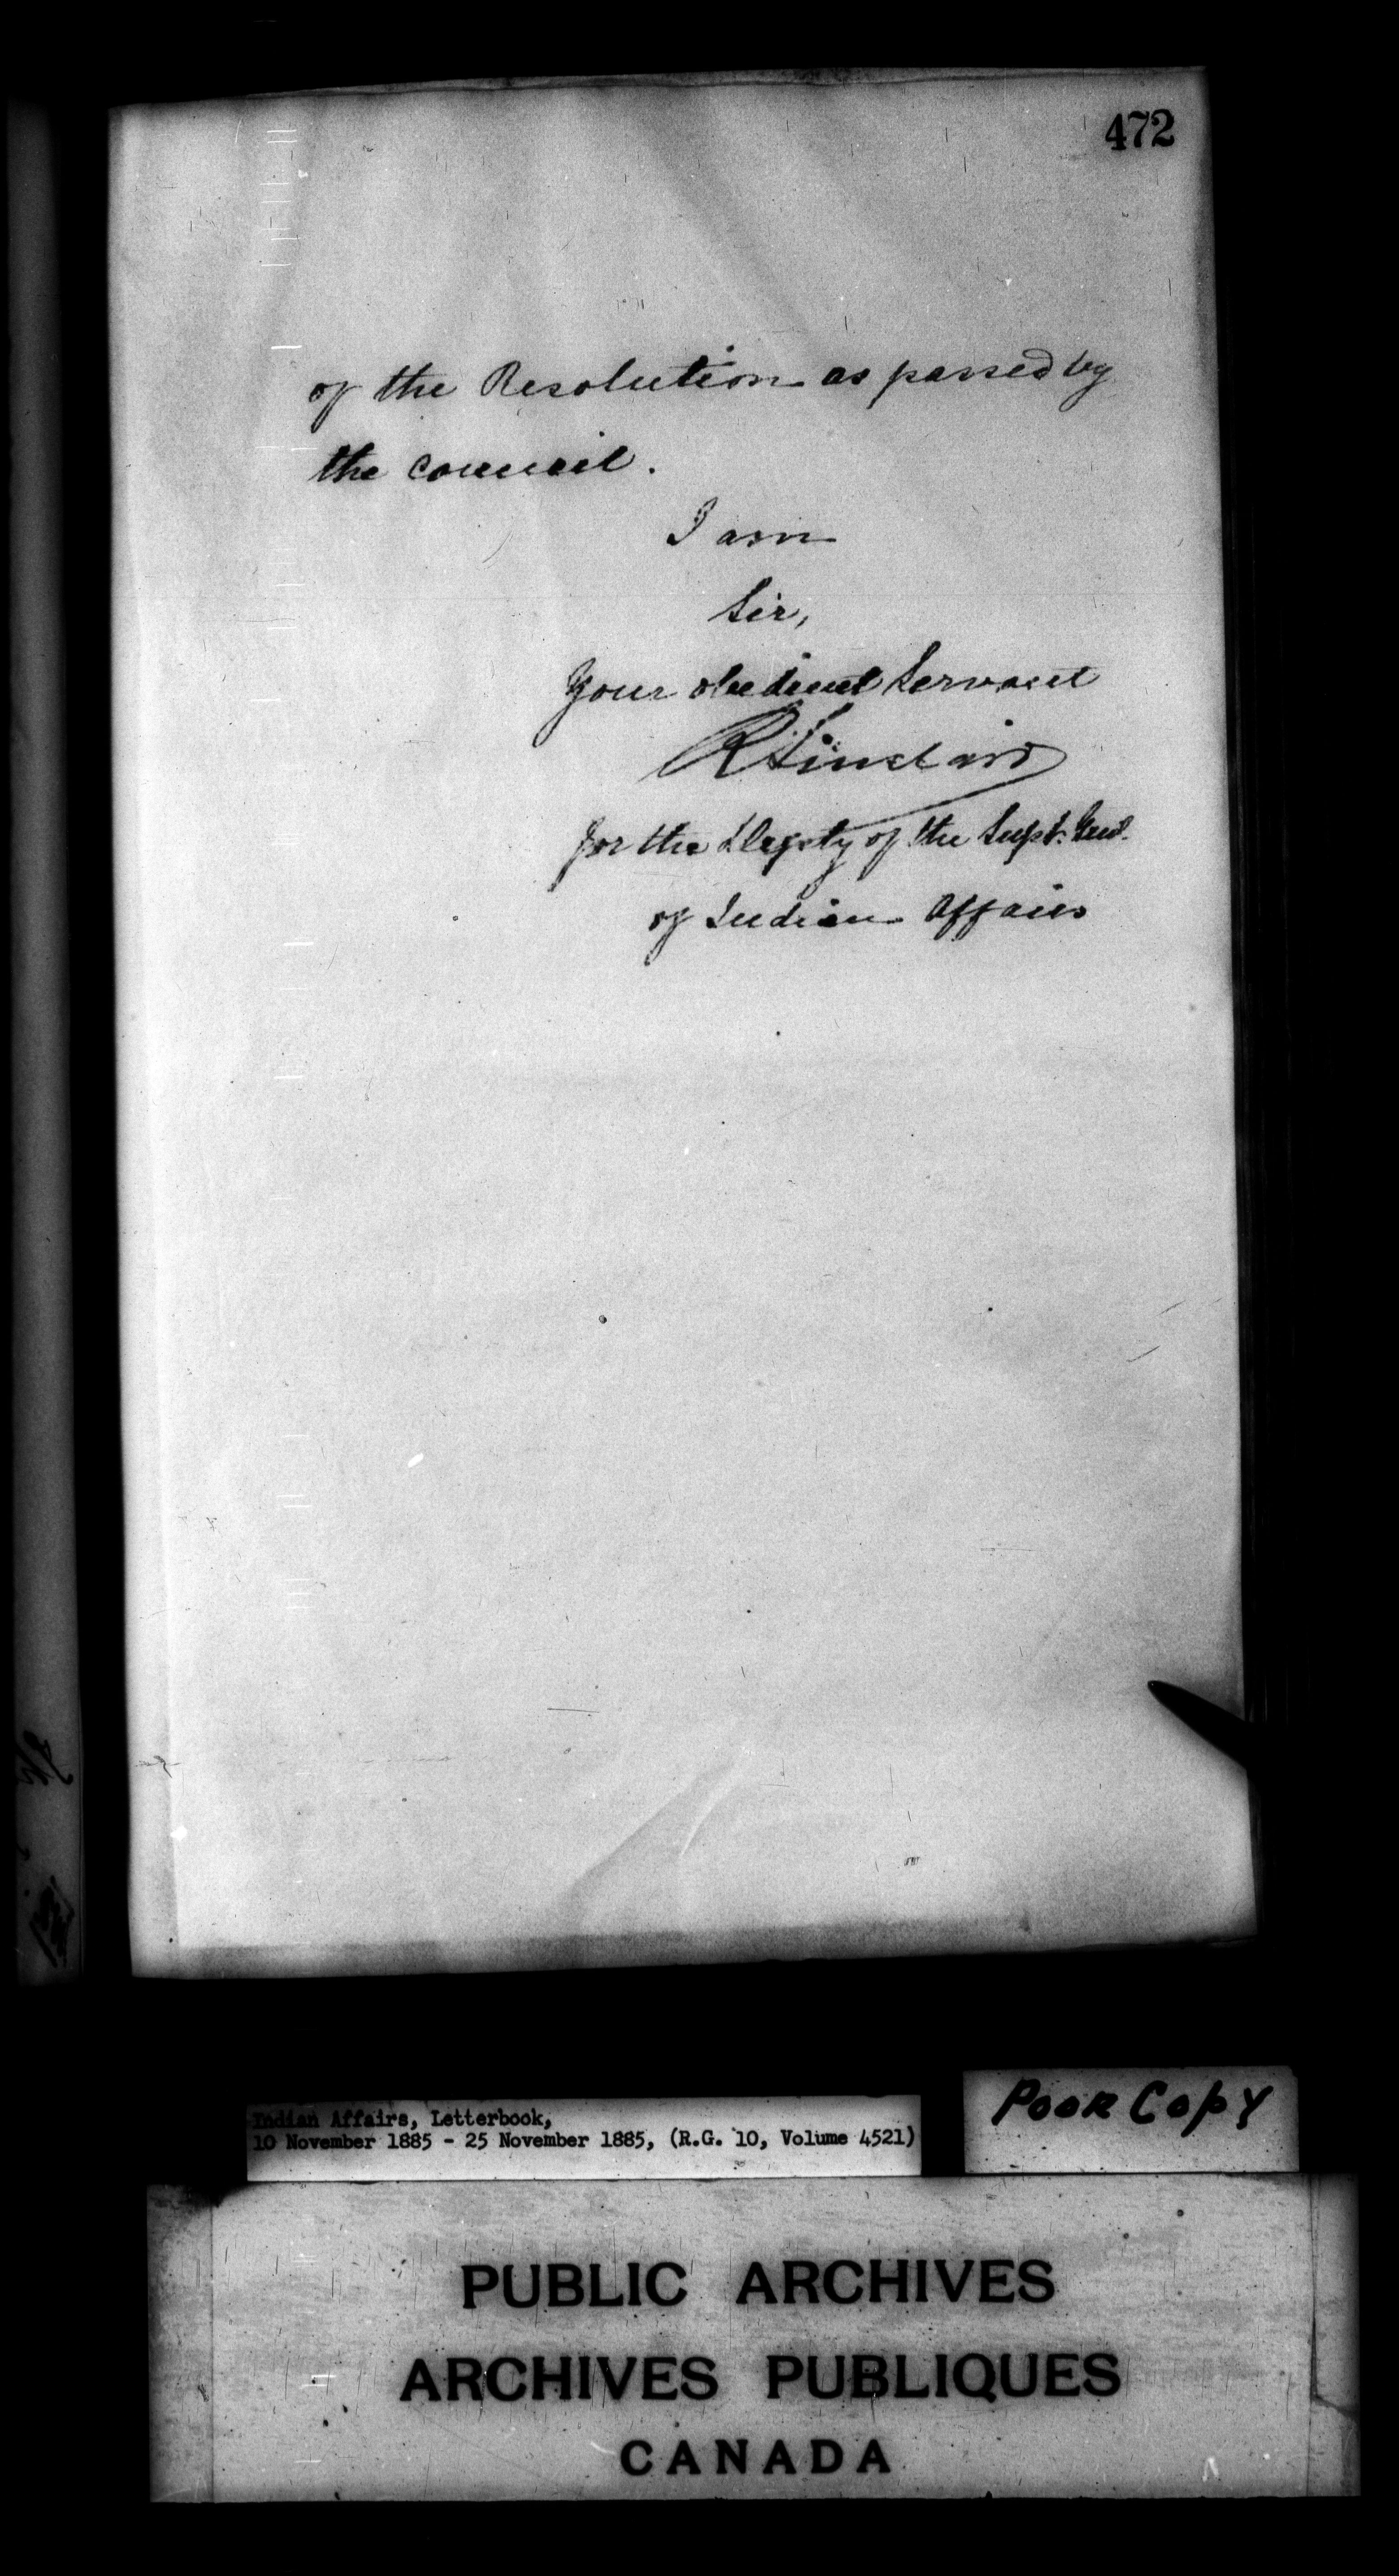 472
of the Resolution as passed by
the Council.
I am
Sir,
Your obedient Servant
R Sinclair
for the Depty of the Supt. Genl.
of Indian Affairs
Indian Affairs, Letterbook,
10 November 1885 - 25 November 1885, (R.G. 10, Volume 4521)
POOR COPY
PUBLIC ARCHIVES
ARCHIVES PUBLIQUES
CANADA